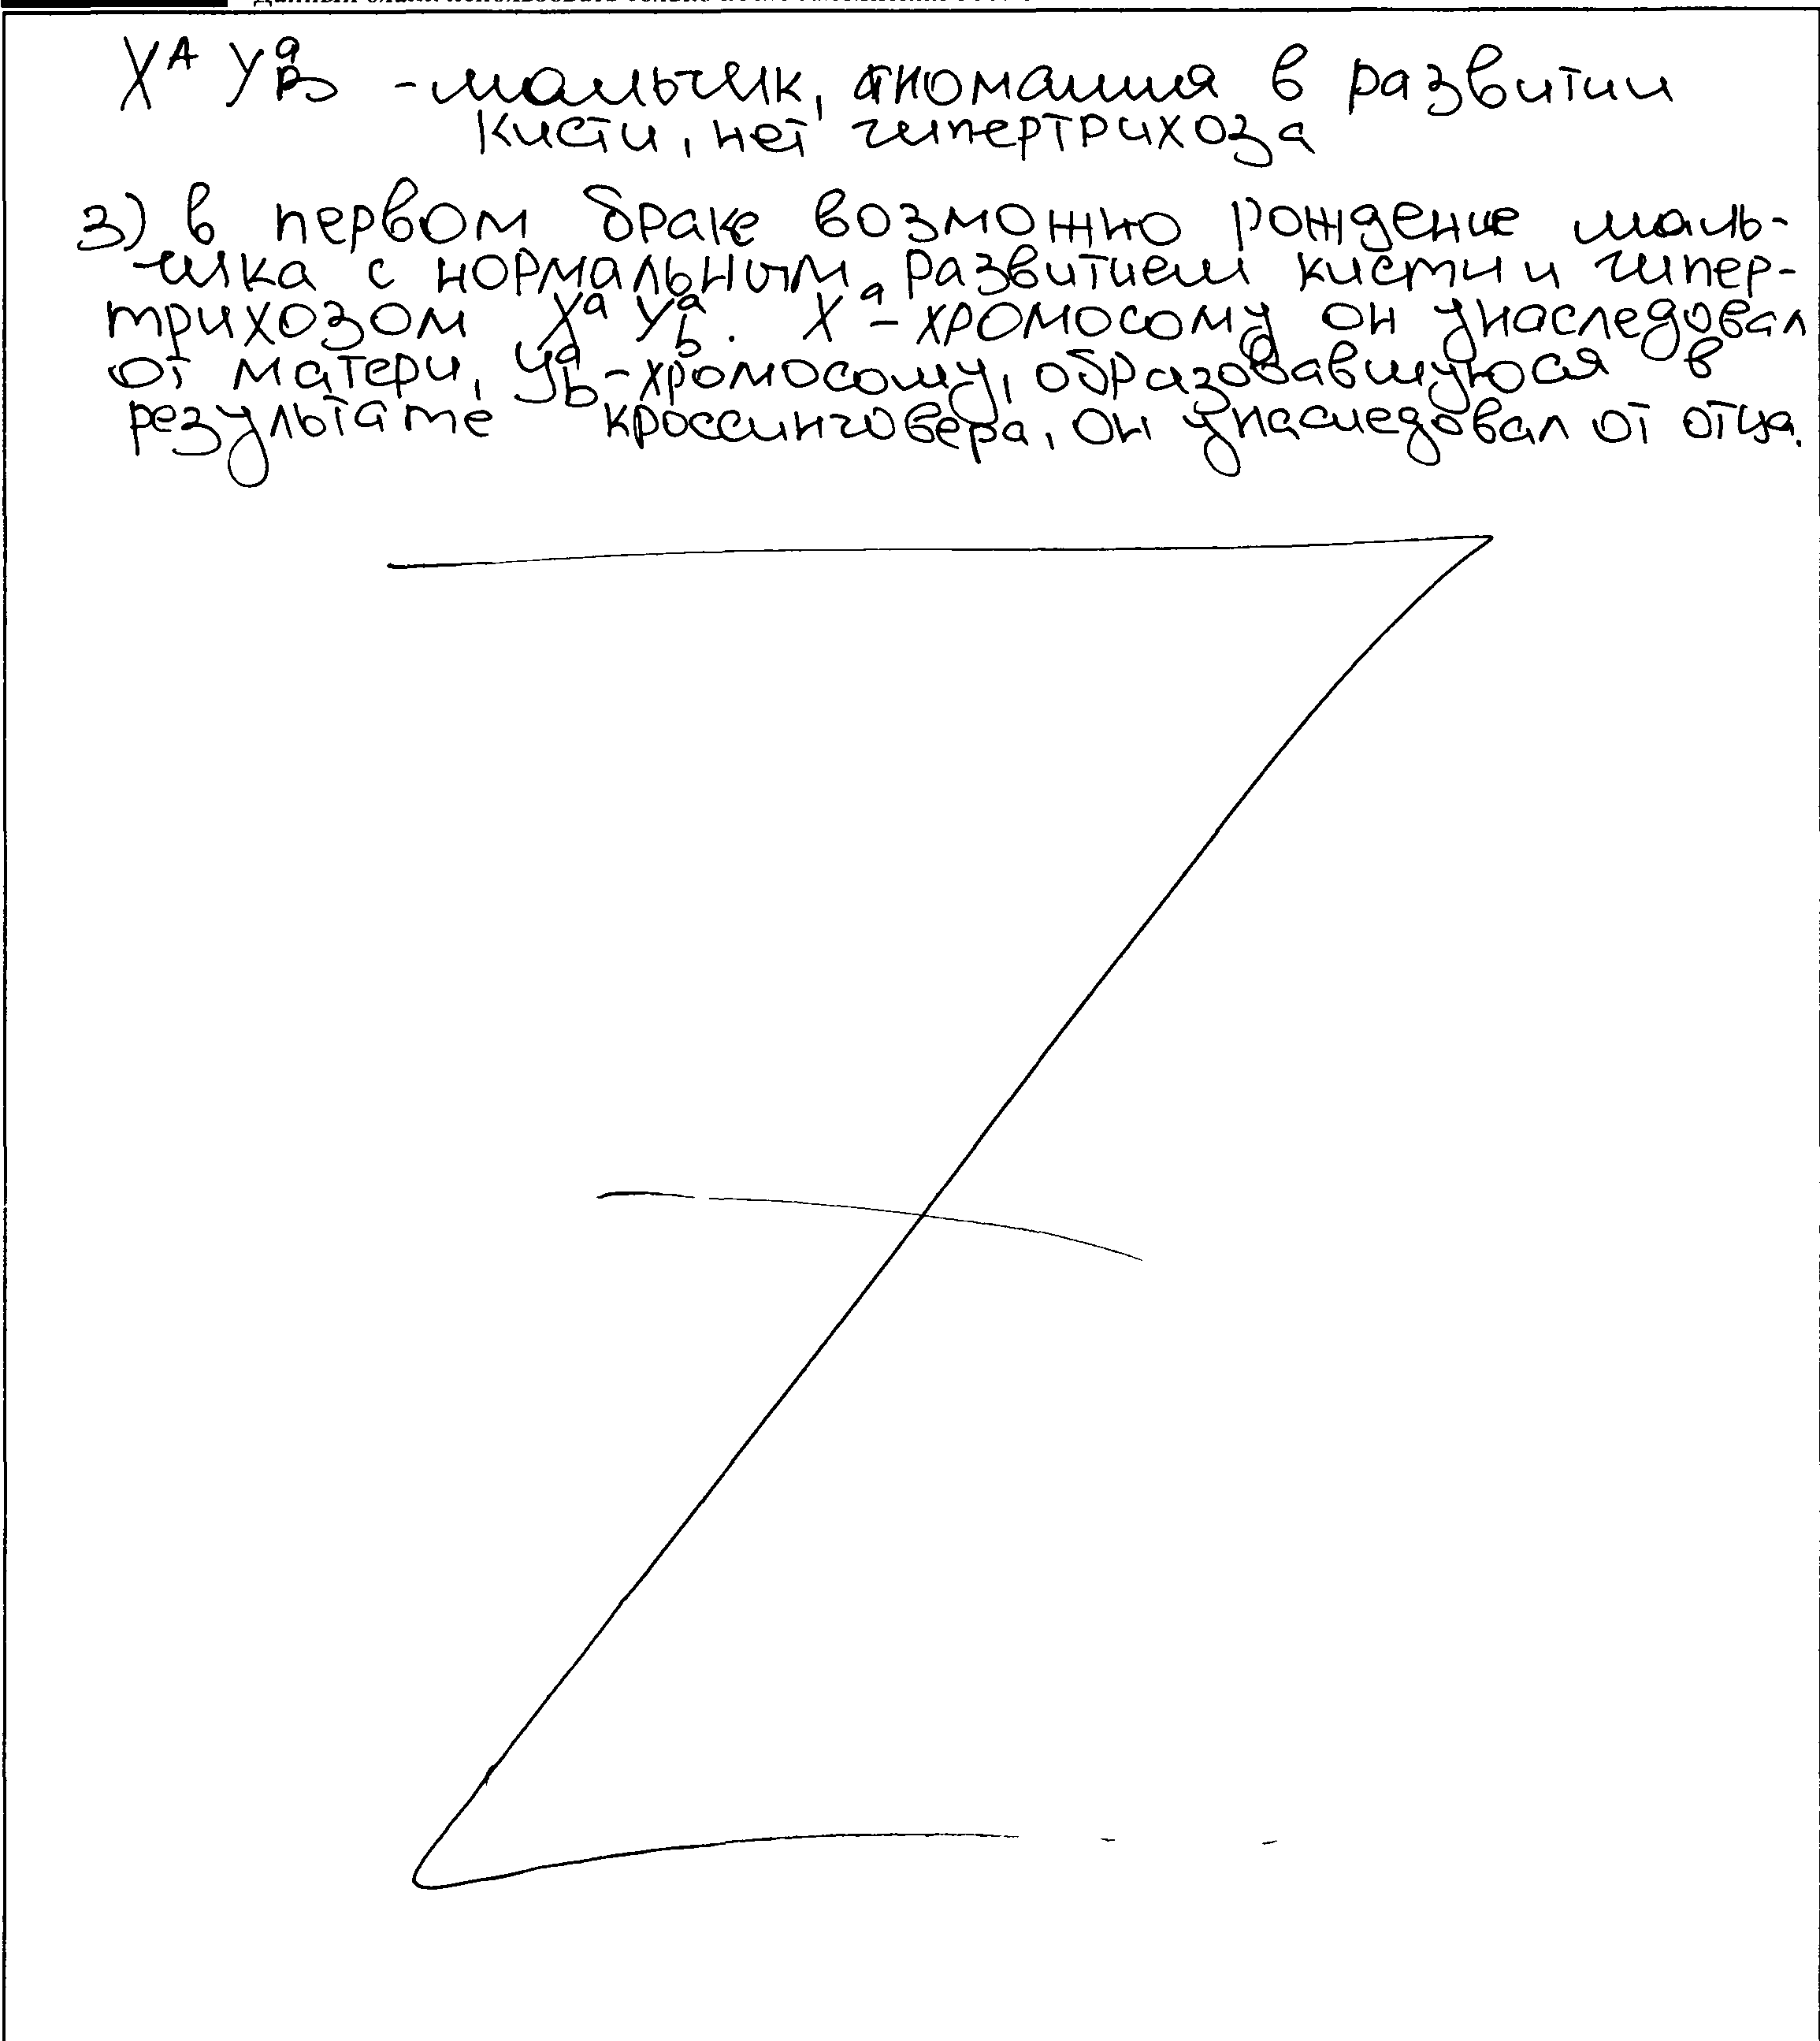 X^A Y^a_B - мальчик, аномалия в развитии
кисти, нет гипертрихоза
3) в первом браке возможно рождение маль-
чика с нормальным развитием кисти и гипер-
трихозом X^a Y^a_b. X^a - хромосому он унаследовал
от матери, Y^a_b - хромосому, образовавшуюся в
результате кроссинговера, он унаследовал от отца.